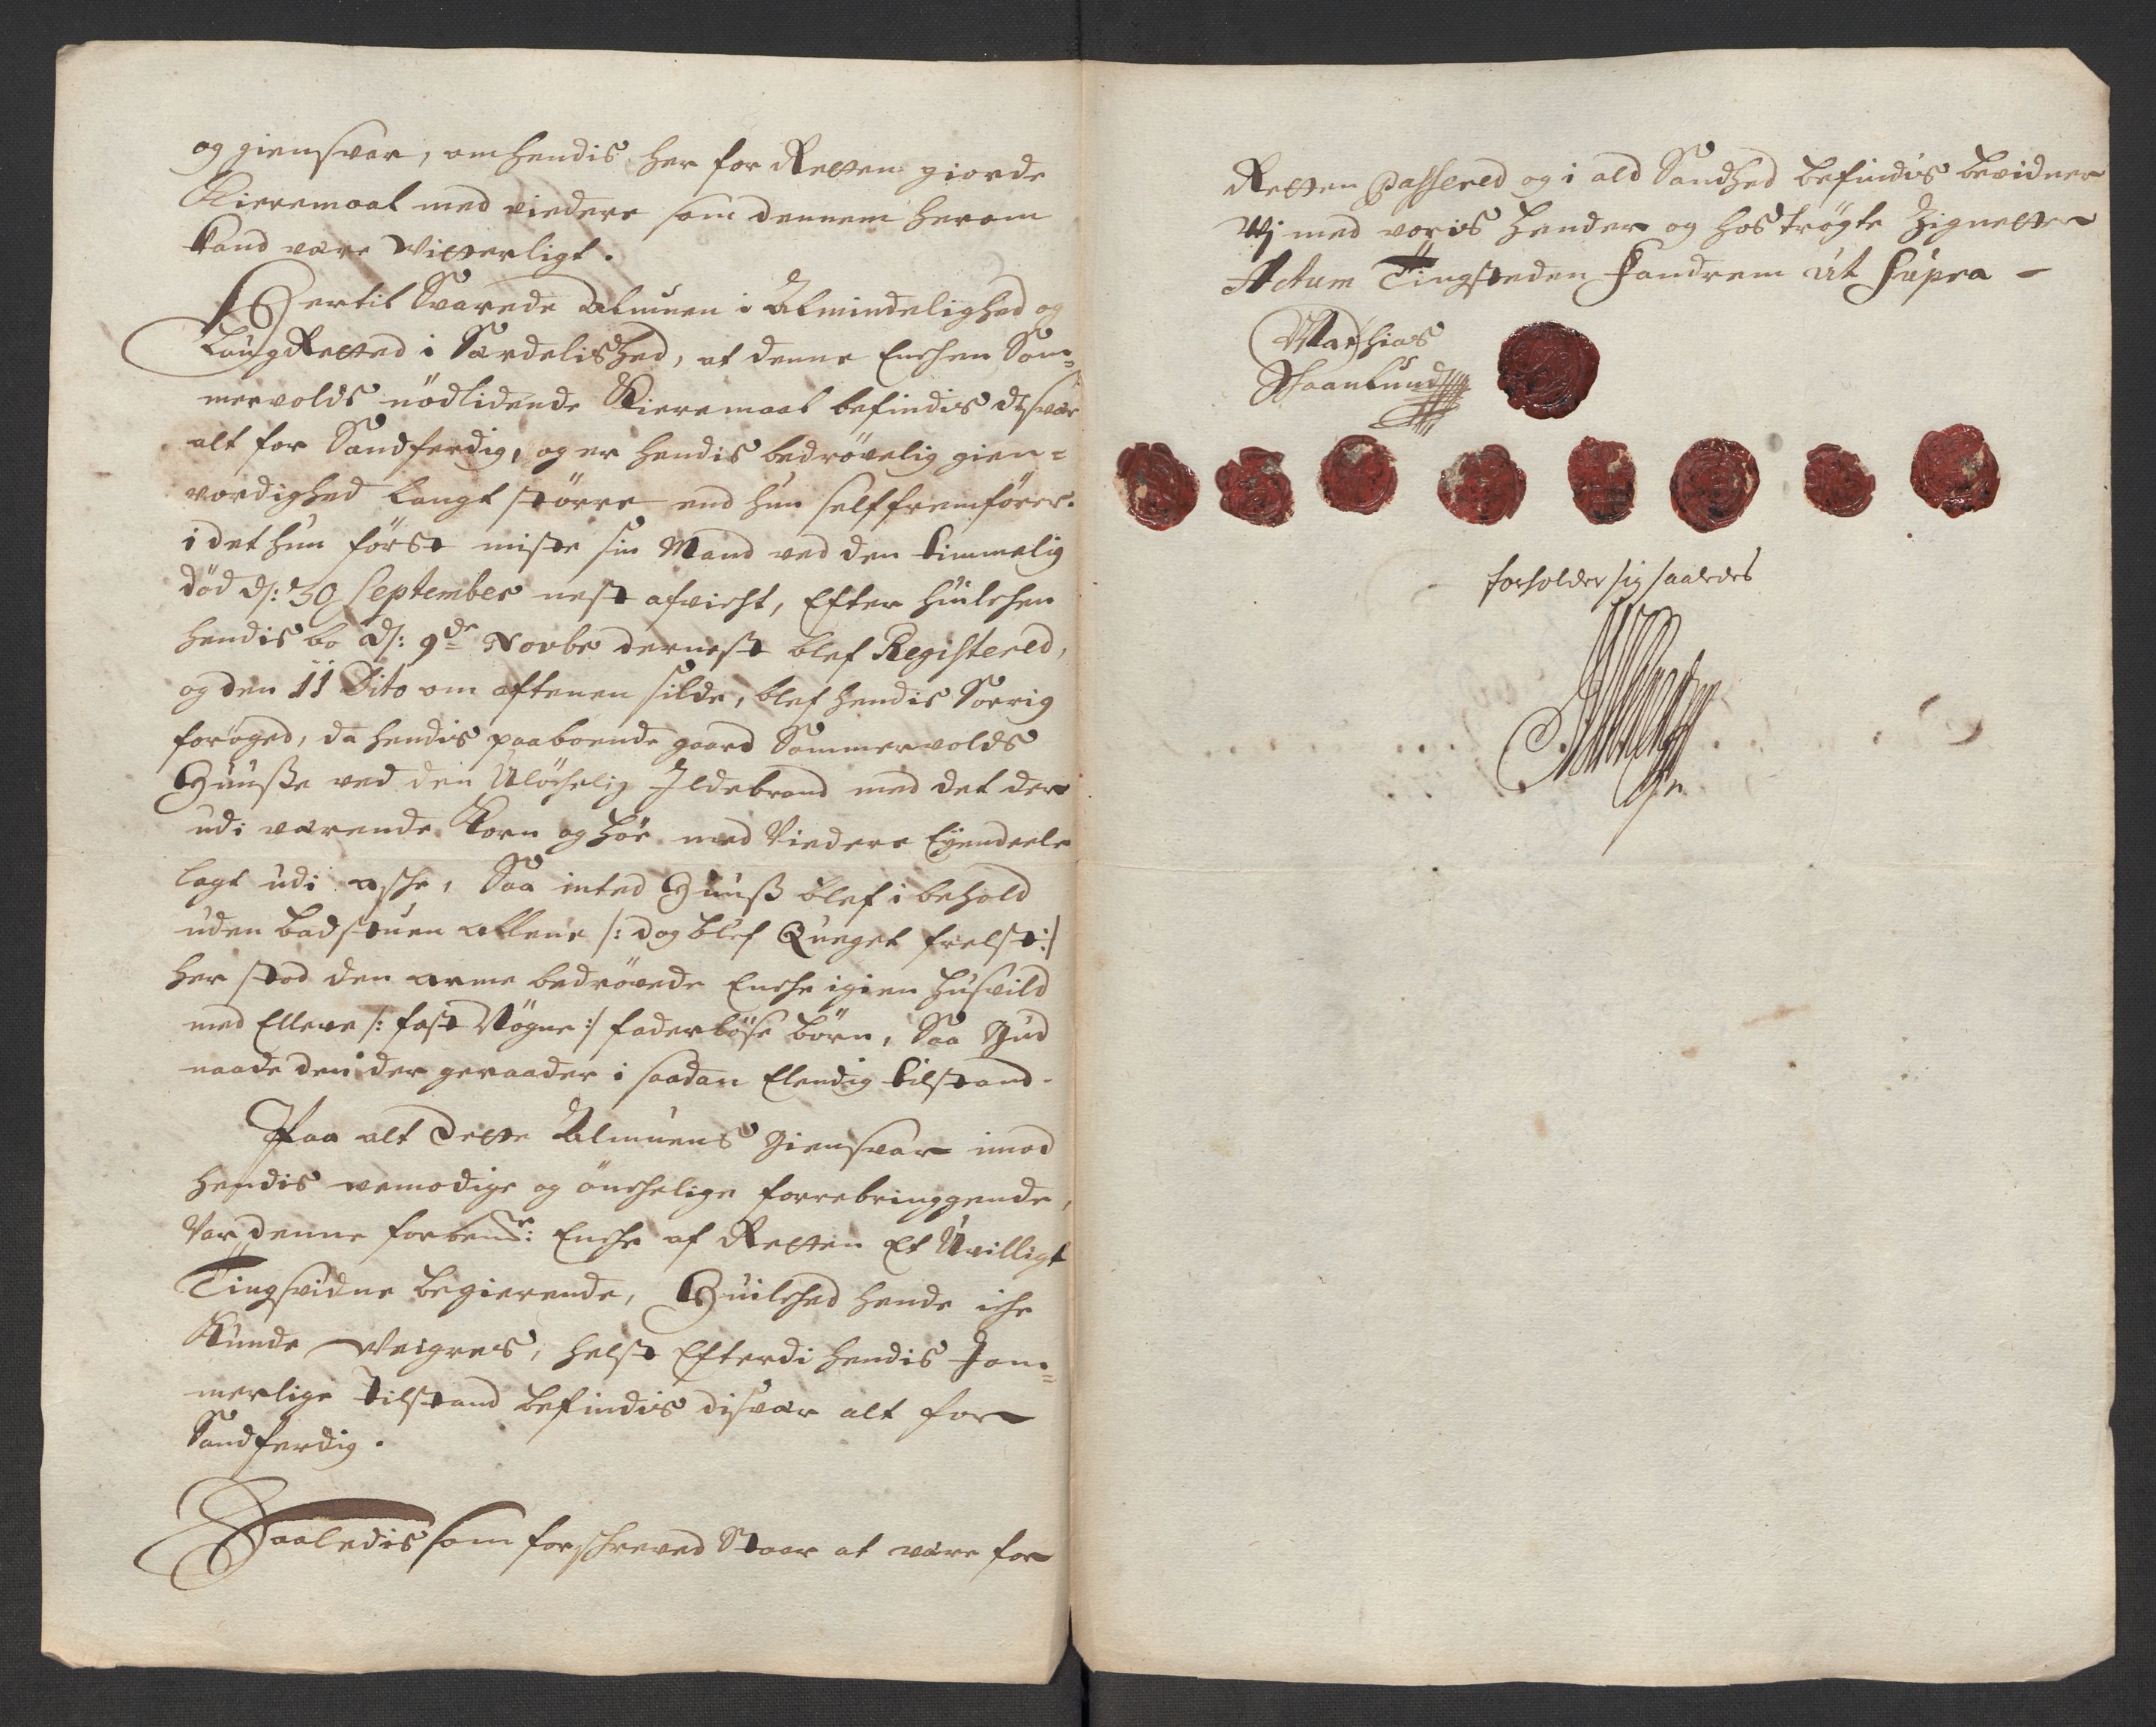 og giensvar, om hendis her for Retten giorde
Kieremaal med viedere som dennem herom
kand være Vitterligt.
Hertil Svarede Almuen i Almindelighed og
LaugRetted i Særdelished, at denne Enchen Som=
mervolds nödlidende Kieremaal befindis disvær
alt for Sandferdig, og er hendis bedrövelig gien=
vordighed langt större end hun self fremförer.
i det hun först miste sin Mand ved den timmelig
död ds: 30 September nest afvicht, Efter huilchen
hendis bo ds: 9de Novbr dernest blef Registered,
og den 11 Dito om aftenen silde, blef hendis Sorrig
foröged, da hendis paaboende gaard Sommervolds
Huusse ved den Ulöchelig Ildebrand med det der
udi værende Korn og Höe med Viedere Eyendeele
lagt udi asche, Saa inted Huuss blef i behold
uden Badstuen allene /: dog blef Queget frelst :/
her stod den arme bedrövede Enche igien huusvild
med Elleve /: fast Nögne :/ faderlöse börn, Saa Gud
naade den der geraader i saadan Elendig tilstand.
Paa alt dette Almuens giensvar imod
hendis vemodige og önchelige forrebringgende,
Var denne forbente: Enche af Retten Et Uvilligt
Tingsvidne begierende, Huilched hende iche
Kunde Veigres, helst Efterdi hendis Jam=
merlige tilstand befindis disvær alt for
Sandferdig.
Saaledis som forschreved Staar at være for
Retten Passered og i ald Sandhed befindis bevidner
Vj med voris hender og hoströgte Zignetter
Actum Tingsteden Sandrem Ut Supra –
Mathias
Schaanlund
forholder sig saaledes